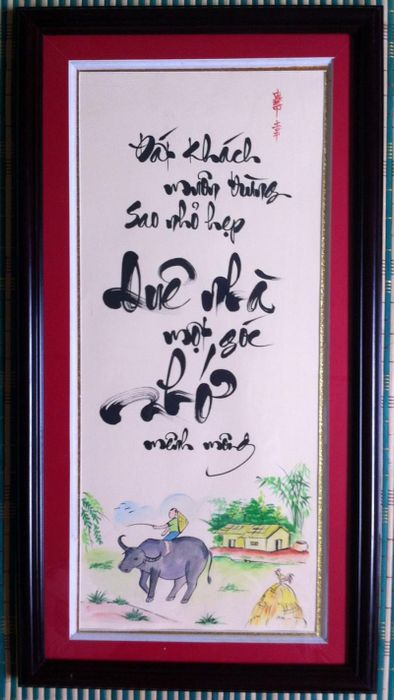 Đất Khách
muôn trùng
Sao nhỏ hẹp
Quê nhà
một góc
nhớ
mênh mông